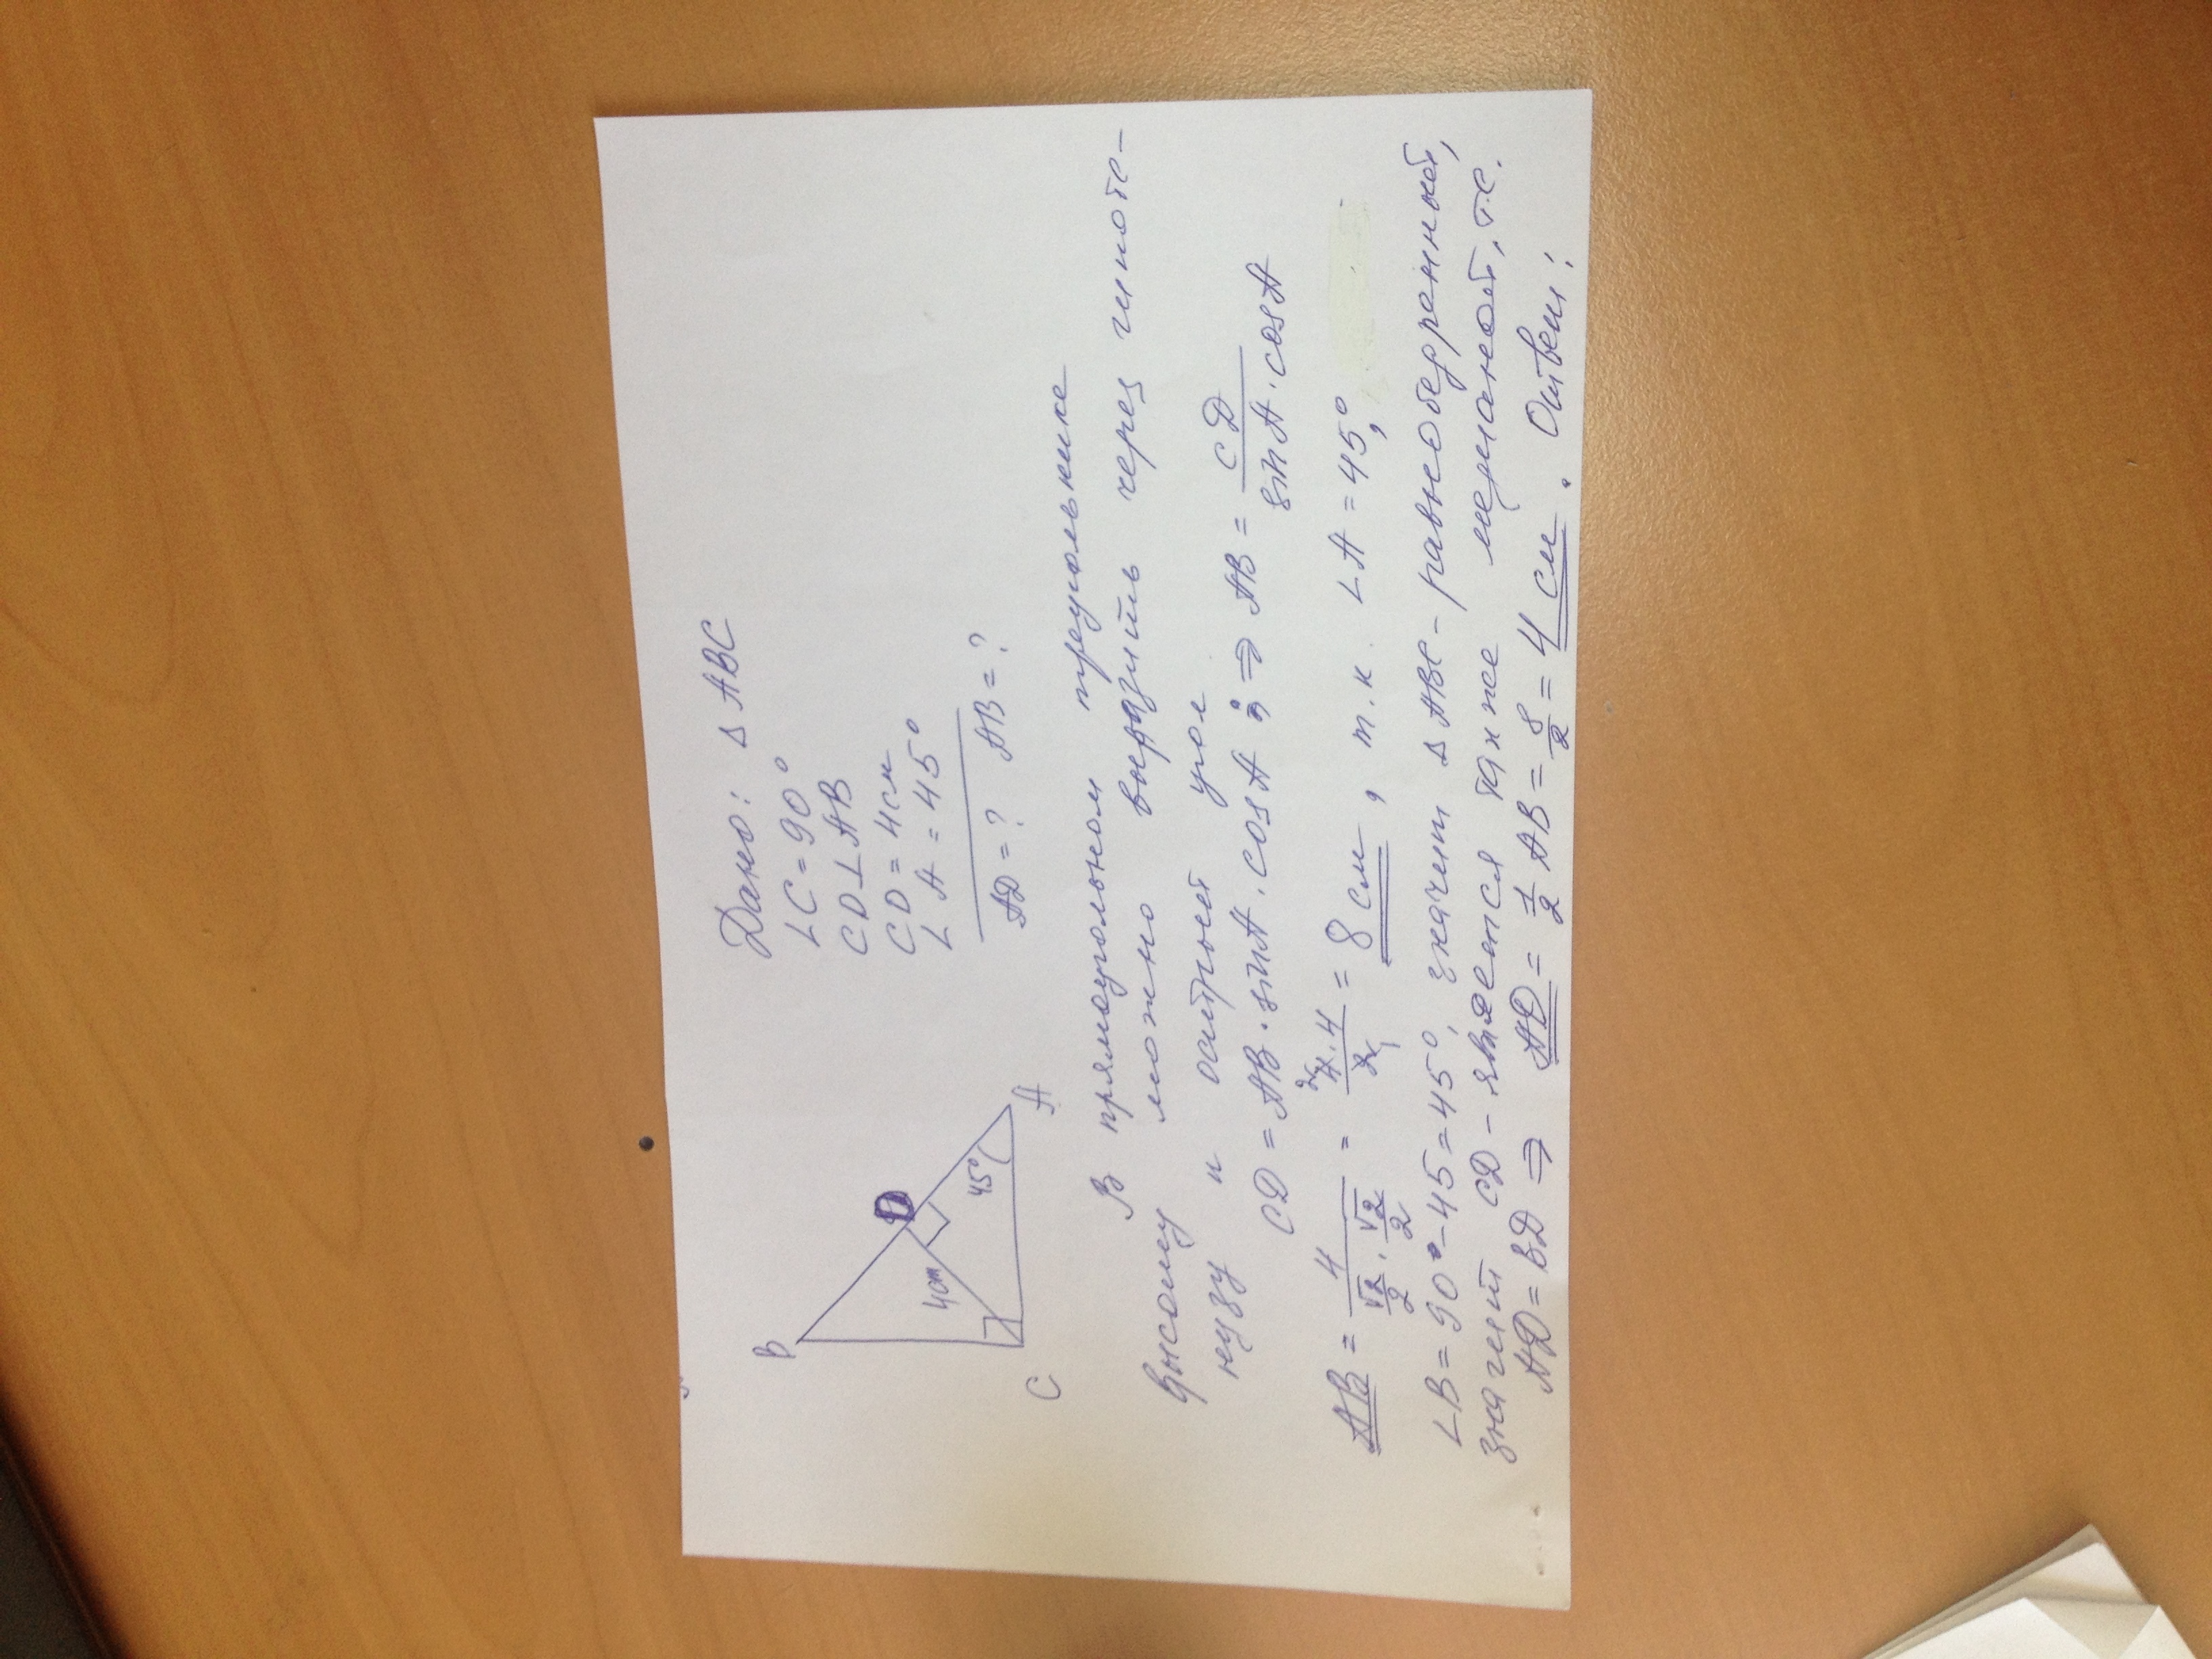 Дано: Δ ABC
∠C = 90°
CD ⊥ AB
CD = 4см
∠A = 45°
AD = ? AB = ?
B
D
4см
45°
C
A
В прямоугольном треугольнике
высоту можно выразить через гипоте-
нузу и острый угол
CD = AB · sinA · cosA ; ⇒ AB = CD / (sin A · cosA)
AB = 4 / (√2/2 · √2/2) = 4 · 4 / 2 = 8 см, т.к. ∠A = 45°,
∠B = 90° - 45 = 45°, значит Δ ABC - равнобедренный,
значит CD - является также медианой, т.е.
AD = BD ⇒ AD = 1/2 AB = 8/2 = 4 см. Ответ: